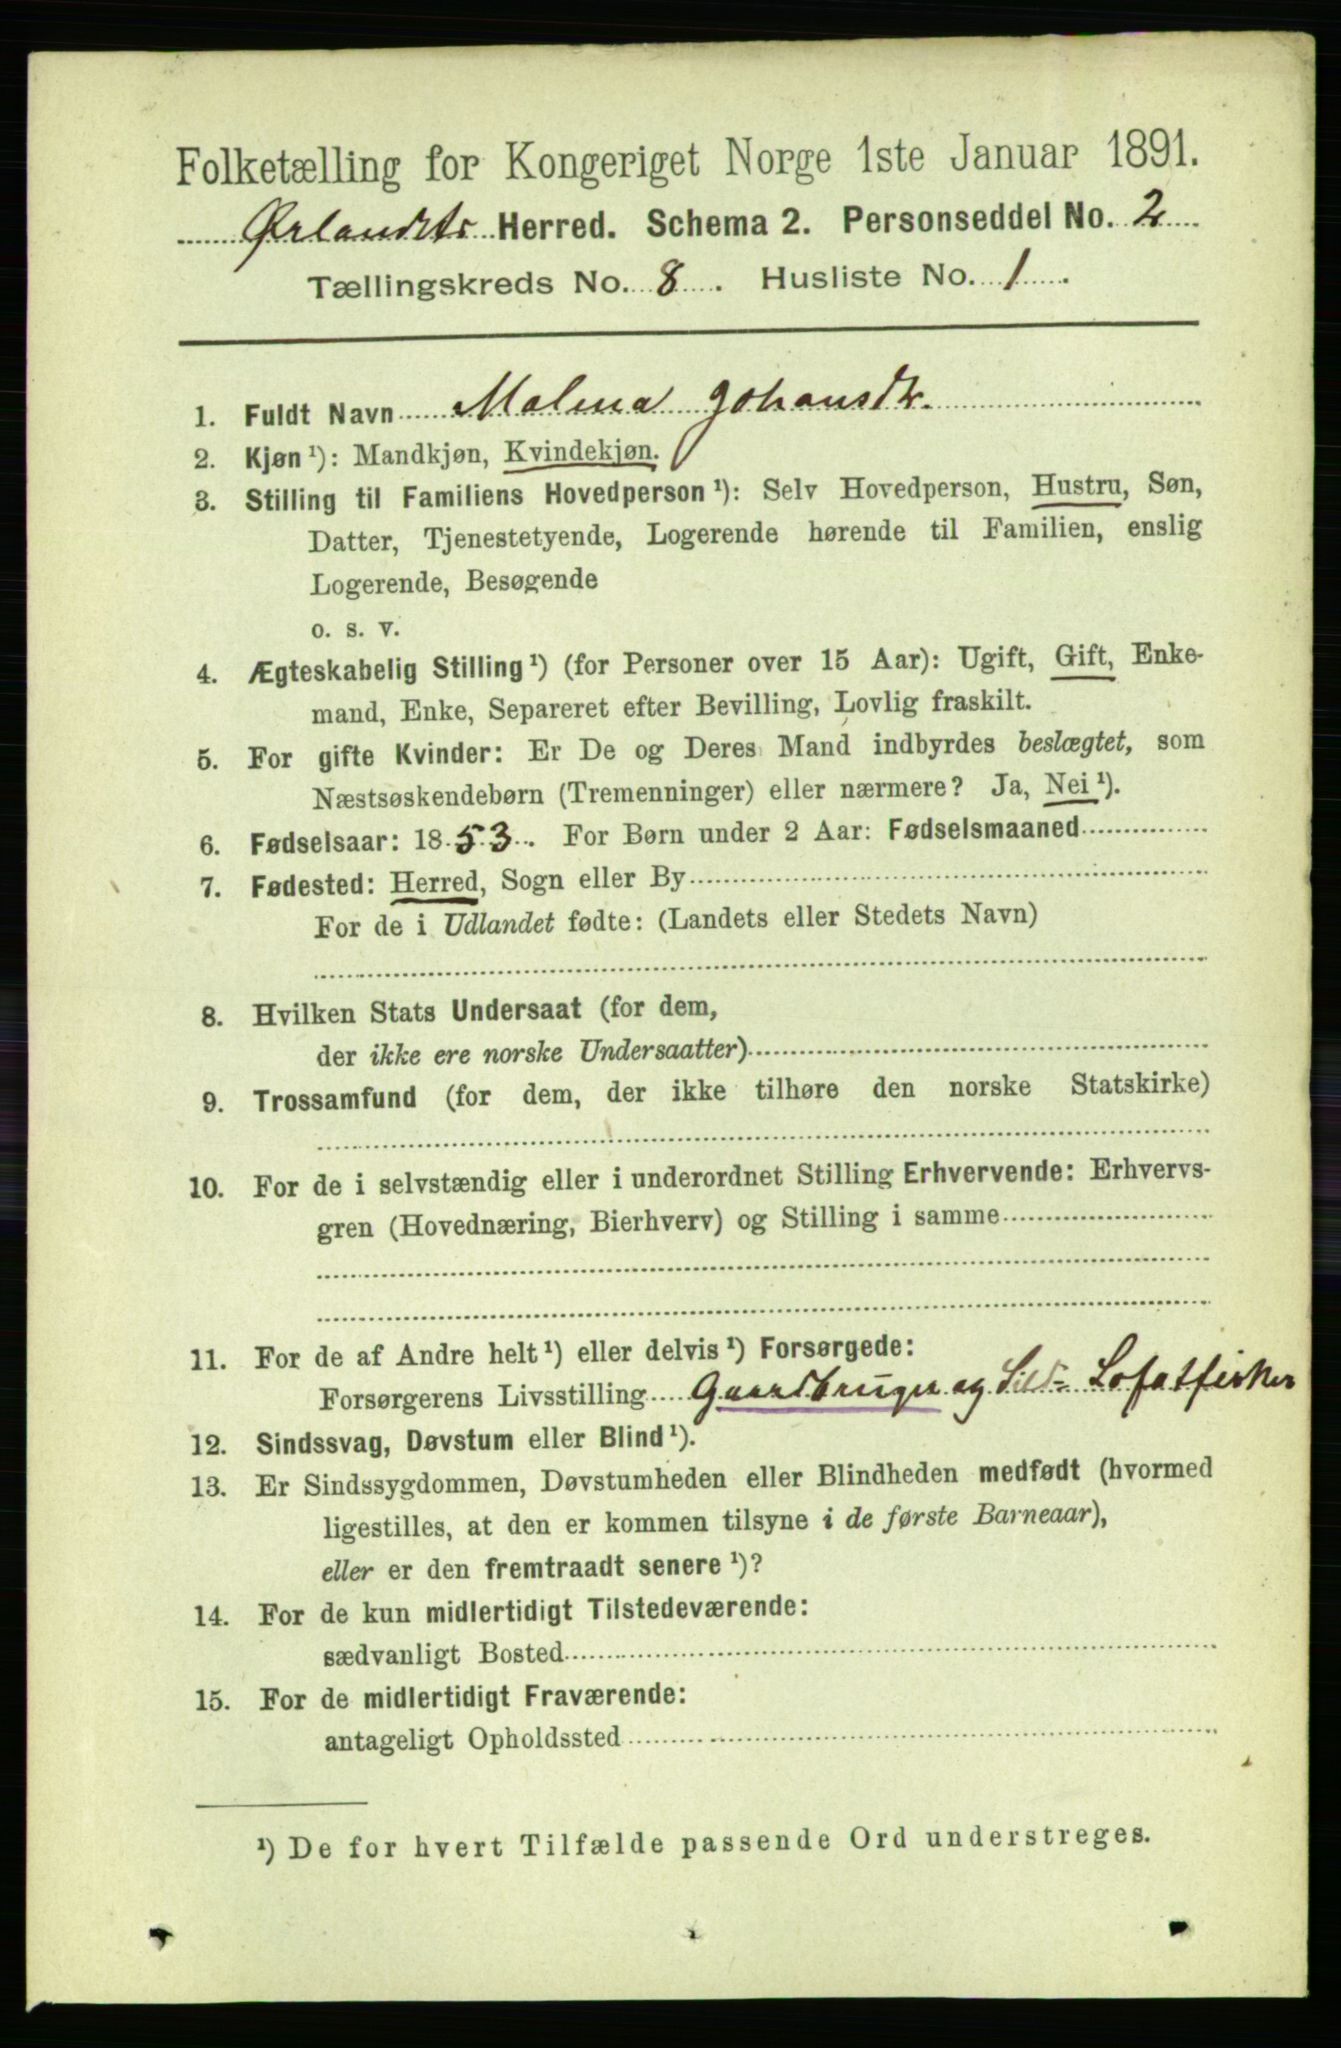 Folketælling for Kongeriget Norge 1ste Januar 1891.
Ørlandets Herred. Schema 2. Personseddel No. 2
Tællingskreds No. 8. Husliste No. 1.
1. Fuldt Navn Malena Johansdtr.
2. Kjøn ¹): Mandkjøn, Kvindekjøn.
3. Stilling til Familiens Hovedperson ¹): Selv Hovedperson, Hustru, Søn,
Datter, Tjenestetyende, Logerende hørende til Familien, enslig
Logerende, Besøgende
o. s. v.
4. Ægteskabelig Stilling ¹) (for Personer over 15 Aar): Ugift, Gift, Enke-
mand, Enke, Separeret efter Bevilling, Lovlig fraskilt.
5. For gifte Kvinder: Er De og Deres Mand indbyrdes beslægtet, som
Næstsøskendebørn (Tremenninger) eller nærmere? Ja, Nei ¹).
6. Fødselsaar: 1853. For Børn under 2 Aar: Fødselsmaaned
7. Fødested: Herred, Sogn eller By
For de i Udlandet fødte: (Landets eller Stedets Navn)
8. Hvilken Stats Undersaat (for dem,
der ikke ere norske Undersaatter)
9. Trossamfund (for dem, der ikke tilhøre den norske Statskirke)
10. For de i selvstændig eller i underordnet Stilling Erhvervende: Erhvervs-
gren (Hovednæring, Bierhverv) og Stilling i samme
11. For de af Andre helt ¹) eller delvis ¹) Forsørgede:
Forsørgerens Livsstilling Gaardbruger og Sild- Lofotfisker
12. Sindssvag, Døvstum eller Blind ¹).
13. Er Sindssygdommen, Døvstumheden eller Blindheden medfødt (hvormed
ligestilles, at den er kommen tilsyne i de første Barneaar),
eller er den fremtraadt senere ¹)?
14. For de kun midlertidigt Tilstedeværende:
sædvanligt Bosted
15. For de midlertidigt Fraværende:
antageligt Opholdssted
¹) De for hvert Tilfælde passende Ord understreges.